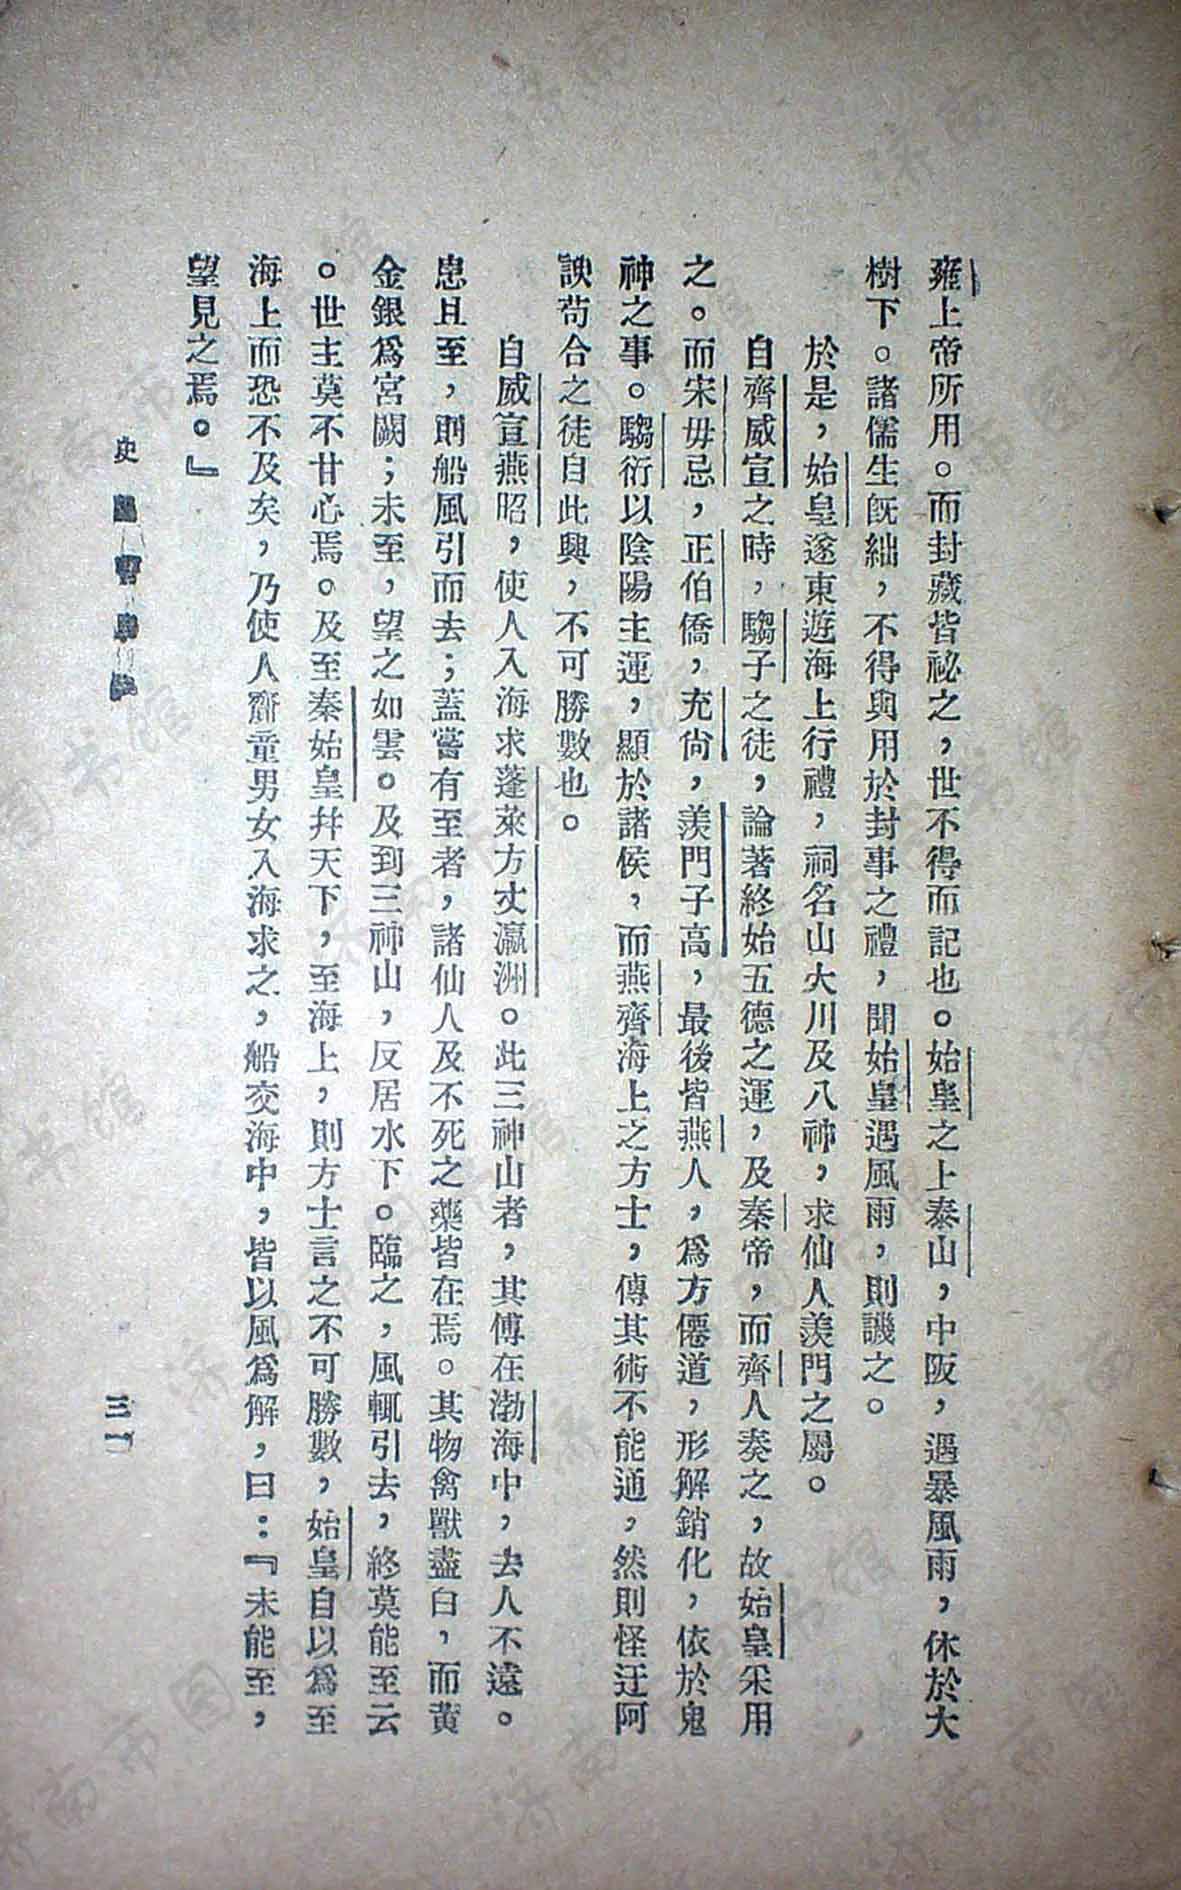 雍上帝所用。而封藏皆祕之，世不得而記也。始皇之上泰山，中阪，遇暴風雨，休於大
樹下。諸儒生旣絀，不得與用於封事之禮，聞始皇遇風雨，則譏之。
於是，始皇遂東遊海上行禮，祠名山大川及八神，求仙人羨門之屬。
自齊威宣之時，騶子之徒，論著終始五德之運，及秦帝，而齊人奏之，故始皇采用
之。而宋毋忌，正伯僑，充尙，羨門子高，最後皆燕人，爲方僊道，形解銷化，依於鬼
神之事。騶衍以陰陽主運，顯於諸侯，而燕齊海上之方士，傳其術不能通，然則怪迂阿
諛苟合之徒自此興，不可勝數也。
自威宣燕昭，使人入海求蓬萊方丈瀛洲。此三神山者，其傅在渤海中，去人不遠。
患且至，則船風引而去；蓋嘗有至者，諸仙人及不死之藥皆在焉。其物禽獸盡白，而黃
金銀爲宮闕；未至，望之如雲。及到三神山，反居水下。臨之，風輒引去，終莫能至云
。世主莫不甘心焉。及至秦始皇幷天下，至海上，則方士言之不可勝數，始皇自以爲至
海上而恐不及矣，乃使人齋童男女入海求之，船交海中，皆以風爲解，曰：『未能至，
望見之焉。』
史